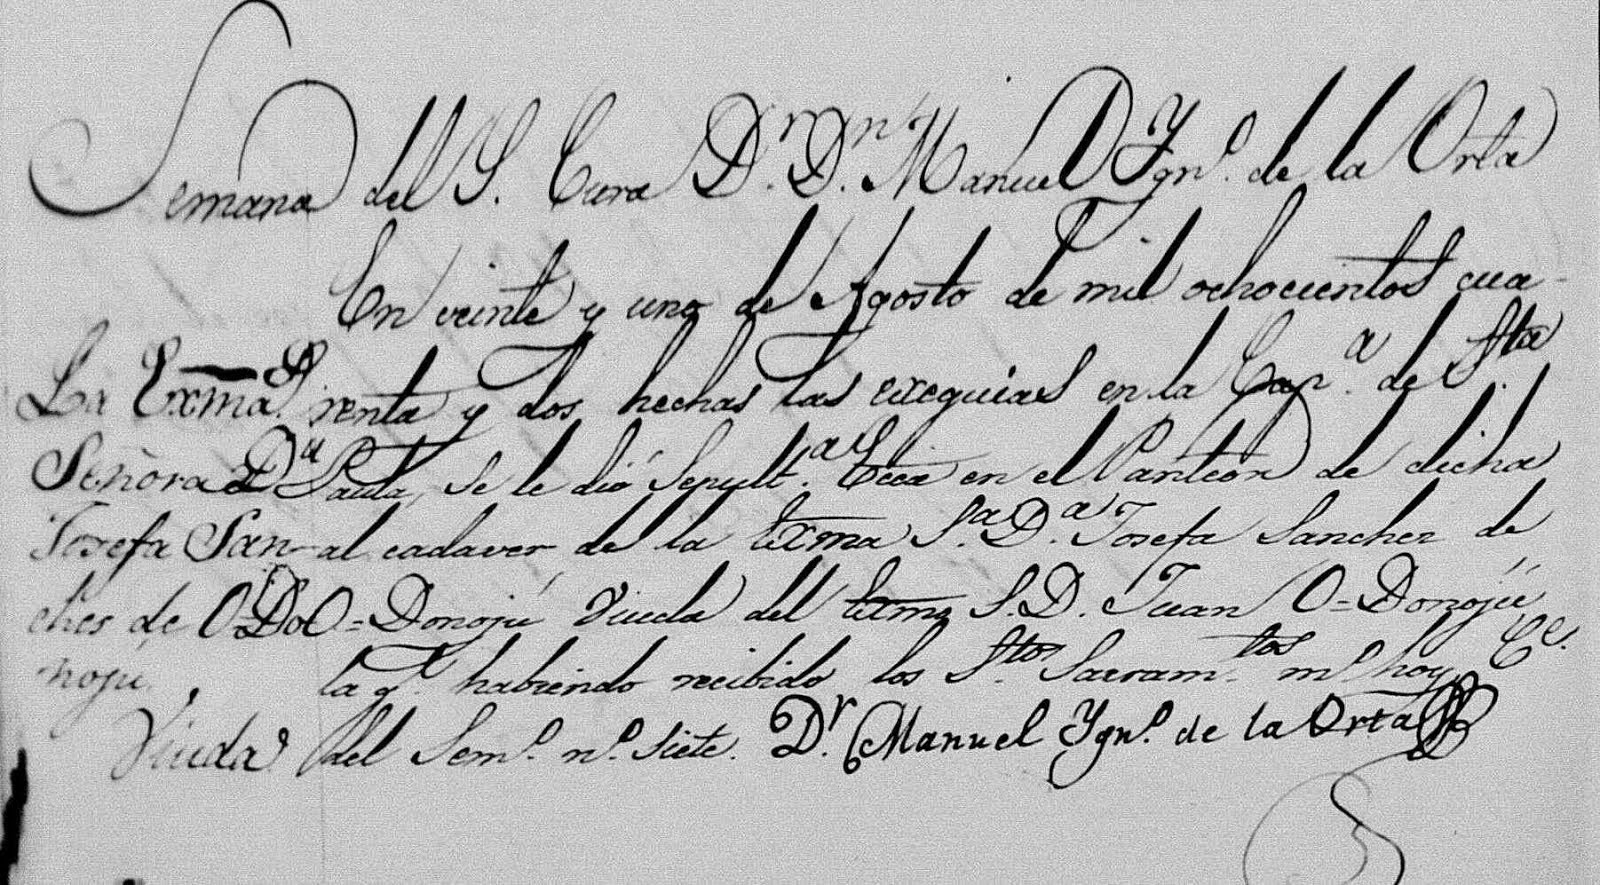 Semana del S. Cura Dr. Dn. Manuel Ygno. de la Orta
En veinte y uno de Agosto de mil ochocientos cua-
renta y dos hechas las exequias en la Capa. de Sta.
Paula, se le dió Sepulta. Ecca en el Panteon de dicha
al cadaver de la Exma Sa. Da. Josefa Sanchez de
O=Donojú Viuda del Exmo S. D. Juan O=Donojú
la qe. habiendo recibido los Stos. Sacramtos. mo. hoy
del Semo. no. siete. Dr. Manuel Ygno. de la Orta
La Exma.
Señora Da
Josefa San-
ches de O-Do
nojú.
Viuda